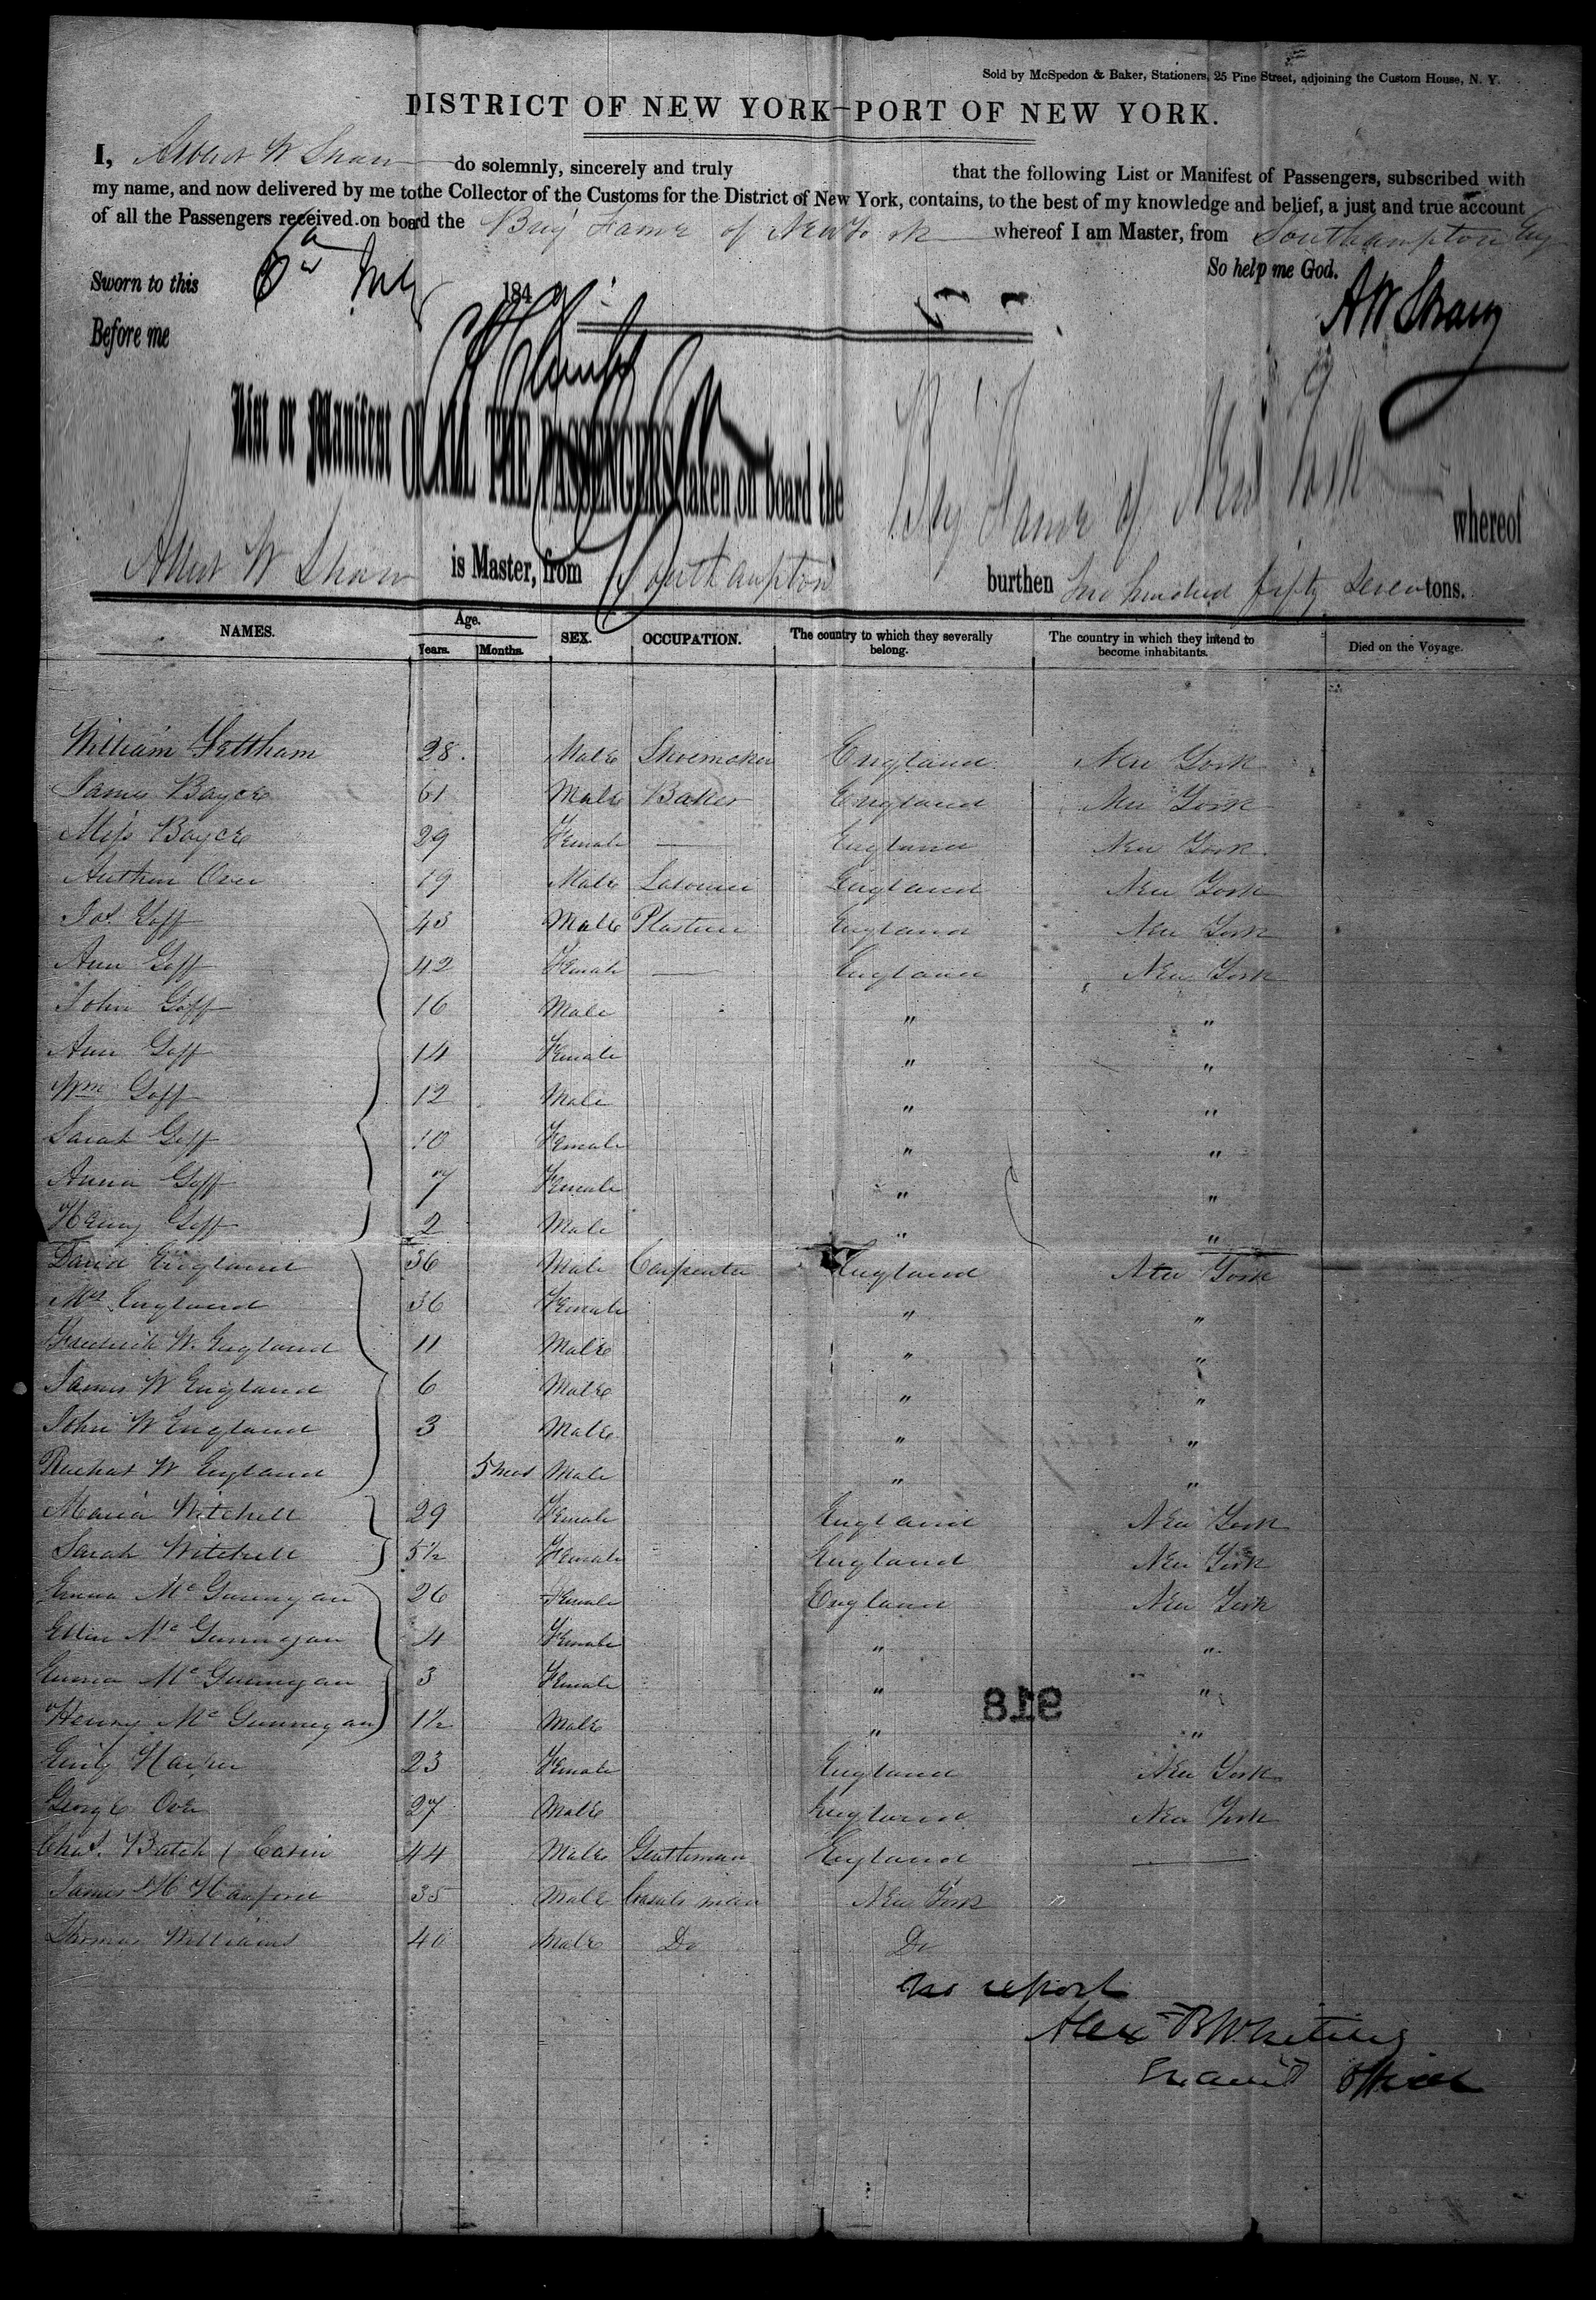 Sold by McSpedon & Baker, Stationers, 25 Pine Street, adjoining the Custom House, N. Y.
DISTRICT OF NEW YORK—PORT OF NEW YORK.
I, Albert W Shaw do solemnly, sincerely and truly that the following List or Manifest of Passengers, subscribed with
my name, and now delivered by me to the Collector of the Customs for the District of New York, contains, to the best of my knowledge and belief, a just and true account
of all the Passengers received on board the Brig Fame of New York whereof I am Master, from Southampton Eng
So help me God.
Sworn to this 184
A W Shaw
Before me
List or Manifest OF ALL THE PASSENGERS taken on board the Brig Fame of New York whereof
Albert W Shaw is Master, from Southampton burthen Two hundred fifty Seven tons.
NAMES. Age. Years. Months. SEX. OCCUPATION. The country to which they severally belong. The country in which they intend to become inhabitants. Died on the Voyage.
William 28. Male Shoemaker England New York
James Boyce 61 Male Baker England New York
Miss Boyce 29 Female — England New York
19 Male England New York
Jos. Goff 43 Male England New York
Ann Goff 42 Female — England New York
John Goff 16 Male " "
Ann Goff 14 Female " "
Wm Goff 12 Male " "
Sarah Goff 10 Female " "
Goff 7 Female " "
Henry Goff 2 Male " "
David England 36 Male Carpenter England New York
Mrs England 36 Female " "
Frederick W. England 11 Male " "
James W England 6 Male " "
John W England 3 Male " "
W England 5 mos Male " "
Maria Witchell 29 Female England New York
Sarah Witchell 5½ Female England New York
Emma Mc 26 Female England New York
Ellen Mc 4 Female " "
Emma Mc 3 Female " "
Henry Mc 1½ Male " "
Emily 23 Female England New York
George 27 Male England New York
Chas. Batch ( Cabin 44 Male Gentleman England —
James H 35 Male New York "
Thomas Williams 40 Male Do Do
816
No report
Alex B Whiting